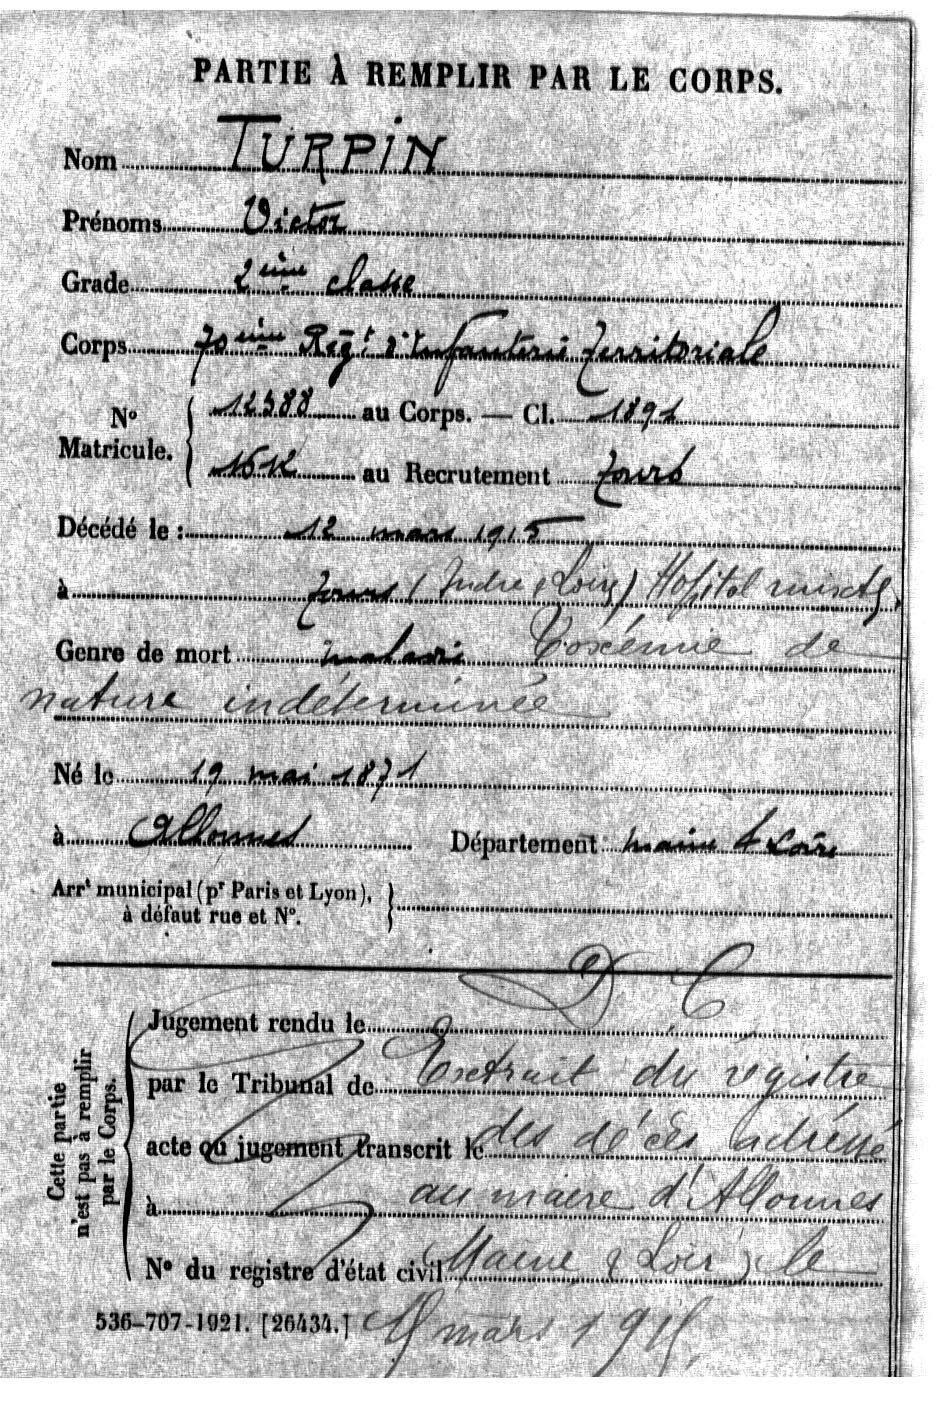 PARTIE À REMPLIR PAR LE CORPS.
Nom TURPIN
Prénoms Victor
Grade 2ième classe
Corps 70ième Régt d'Infanterie Territoriale
N° Matricule. 12388 au Corps. — Cl. 1891
1512 au Recrutement Tours
Décédé le : 12 mars 1915
à Tours (Indre & Loire) Hôpital mixte,
Genre de mort maladie Toxémie de
nature indéterminée
Né le 19 mai 1871
à Allonnes Département maine & Loire
Arrt municipal (pr Paris et Lyon),
à défaut rue et N°.
D C
Cette partie
n'est pas à remplir
par le Corps.
Jugement rendu le
par le Tribunal de Extrait du registre
acte ou jugement transcrit le des décès adressé
à au maire d'Allonnes
N° du registre d'état civil Maine & Loir), le
536-707-1921. [26434.] mars 1915.